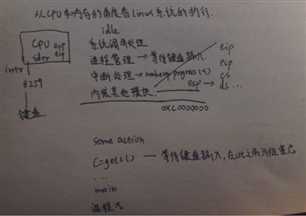 从CPU和内存的角度看Linux系统的执行
idle
CPU esp
eip
系统调用处理
intr
进程管理 → 等待键盘输入
eip
8259
中断处理 →
esp
cs
内核其他模块
esp → ds...
键盘
0xc0000000
some action
C=getc() — 等待键盘输入,在此之前
...
main
进程